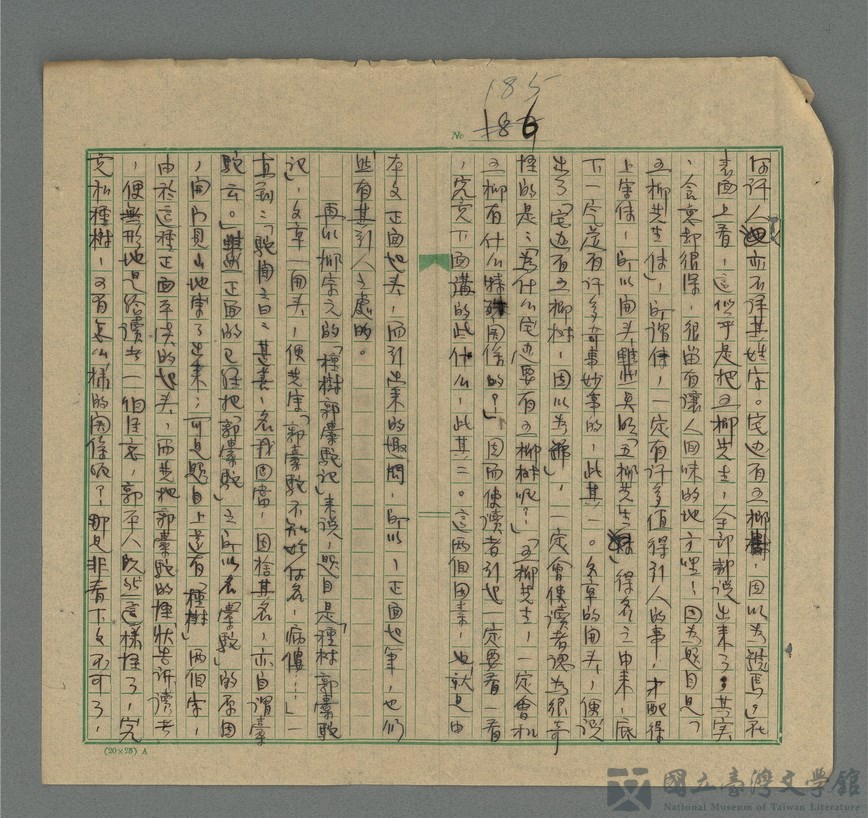 185
No 186
何許人，亦不詳其姓字。宅边有五柳樹，因以为號焉。」在
表面上看，這似乎是把五柳先生，全部都說出来了。其实
，含意却很深，很富有讓人回味的地方哩！因为題目是「
五柳先生傳」，所謂傳，一定有许多值得引人的事，才配得
上字傳，所以開头雖然点明「五柳先生」得名之由来，底
下一定是有许多奇事妙事的，此其一。文章的開头，便說
出了「宅边有五柳樹，因以为號」，一定會使讀者認为很奇
怪的是：「为什么宅边要有五柳樹呢？」「五柳先生，一定會和
五柳有什么特殊関係的？」因而使讀者引起一定要看一看
，究竟下面講的些什么，此其二。這兩個因素，也就是由
本文正面起头，而引出来的趣問，所以，正面起筆，也们
些有其引人之處的。
再以柳宗元的「種樹郭橐駝記」来说，題目是「種樹郭橐駝
記」，文章一開头，便先寫「郭橐駝不知始何名，病僂…」一
直到：「駝聞之曰：甚善，名我固當，因捨其名，亦自謂橐
駝云。」雖然正面的已經把「郭橐駝」之所以名「橐駝」的原因
，開门見山地寫了出来；可是題目上還有「種樹」兩個字，
由於這種正面平淡的起头，而先把郭橐駝的怪狀告訴讀者
，便無形地已給讀者一個注意，郭个人既然這樣怪了，究
竟和種樹，又有怎么樣的関係呢？那是非看下文不可了，
(20×25) A
國立臺灣文學館
National Museum of Taiwan Literature